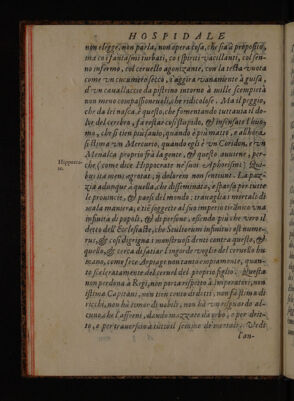 HOSPIDALE
non elegge, non parla, non opera cosa, che sia à proposito,
ma co i fantasmi turbati, co i spiriti vacillanti, col sen-
no infermo, col ceruello agonizante, con la testa vuota
come vn cucumero secco, s'aggira vanamente à guisa
d'vn cauallaccio da pistrino intorno à mille scempietà
non meno compassioneuoli, che ridicolose. Ma il peggio,
che da lei nasca è questo, che fomentando tuttauia il do-
lor del cerebro, fa restar cosi stupido, & insensato l'huo-
mo, che si tien più sauio, quando è più matto, e allhora
si stima vn Mercurio, quando egli è vn Coridon, e vn
Menalca proprio frà la gente, & questo auuiene, per-
che (come dice Hippocrate ne' suoi Aphorismi) Qui-
Hippocra-
te.
bus ita mens egrotat, ij dolorem non sentiunt. La paz-
zia adunque à quella, che disseminata, e sparsa per tutte
le prouincie, & paesi del mondo, trauaglia i mortali di
mala maniera, e tiē soggetto al suo imperio tirānico vna
infinita di popoli, & di persone, essendo più che vero il
detto dell'Ecclesiaste, che Stultorum infinitus est nume-
rus, & cosi digrigna i mostruosi denti contra questo, &
quello, & cerca di satiar l'ingorde voglie del ceruello hu-
mano, come fece Arpago non tanto empiamente, quan-
to sceleratamente del ceruel del proprio figlio. Questa
non perdona à Regi, non porta rispetto à Imperatori, non
istima Capitani, non tien conto di dotti, non fà stima di
ricchi, non hà timor di nobili, non hà vn risguardo al-
cuno, che l'affreni, dando mazzate da orbo, o per drit-
to, o per trauerso in tutto il semine de' mortali. Vedi
l'an-